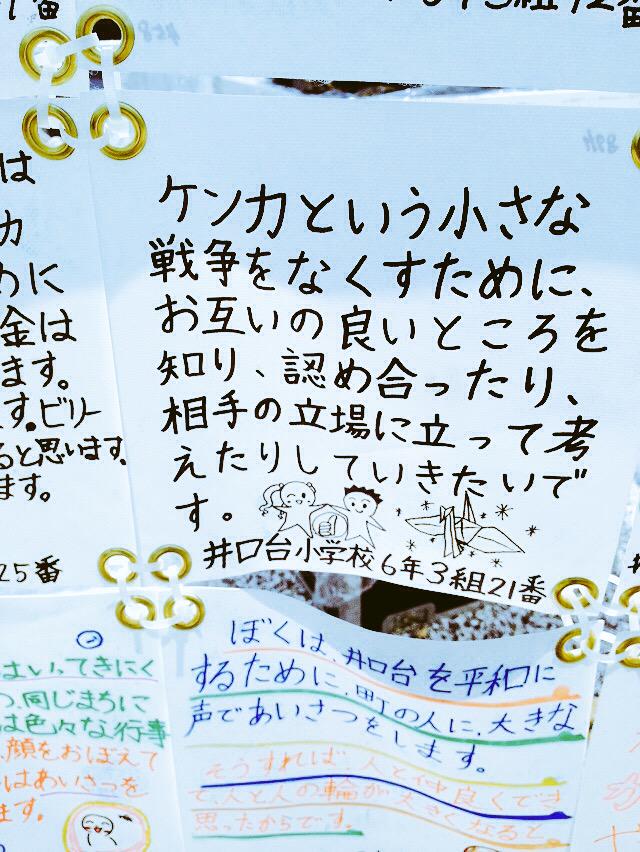 ケンカという小さな
戦争をなくすために、
お互いの良いところを
知り、認め合ったり、
相手の立場に立って考
えたりしていきたいで
す。
井口台小学校6年3組21番
は
カ
めに
金は
ます。
す。ビリー
ると思います。
ます。
25番
ぼくは、井口台を平和に
するために、町の人に、大きな
声であいさつをします。
そうすれば、人と仲良くでき
て、人と人の輪が大きくなると
思ったからです。
はいってきにく
つ、同じまちに
は色々な行事
、顔をおぼえて
はあいさつを
ます。